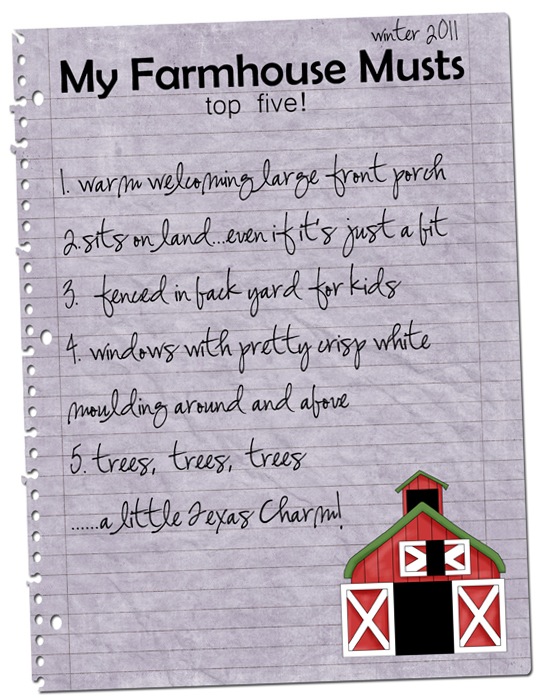 winter 2011
My Farmhouse Musts
top five!
1. warm welcoming large front porch
2. sits on land...even if it's just a bit
3. fenced in back yard for kids
4. windows with pretty crisp white
moulding around and above
5. trees, trees, trees
......a little Texas Charm!